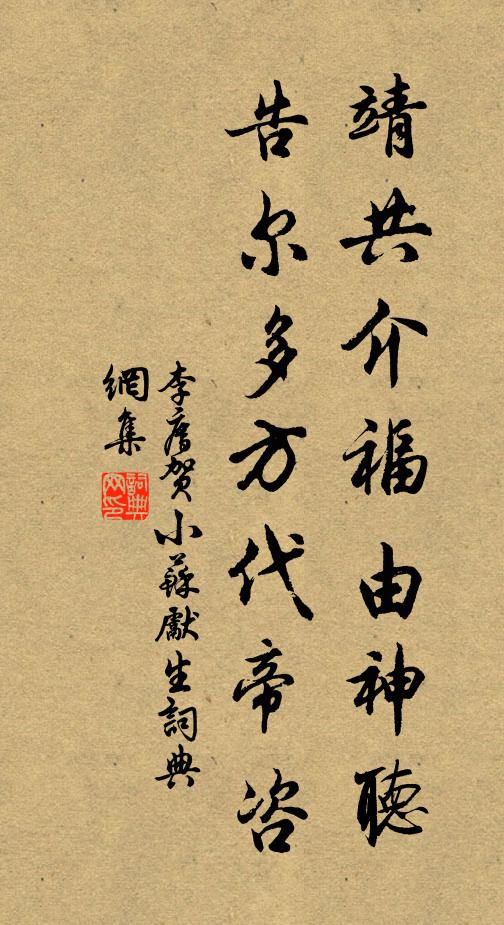 靖共介福由神聽
告尔多方代帝咨
李廌賀小蘇獻生詞典
網集
詞典
网印